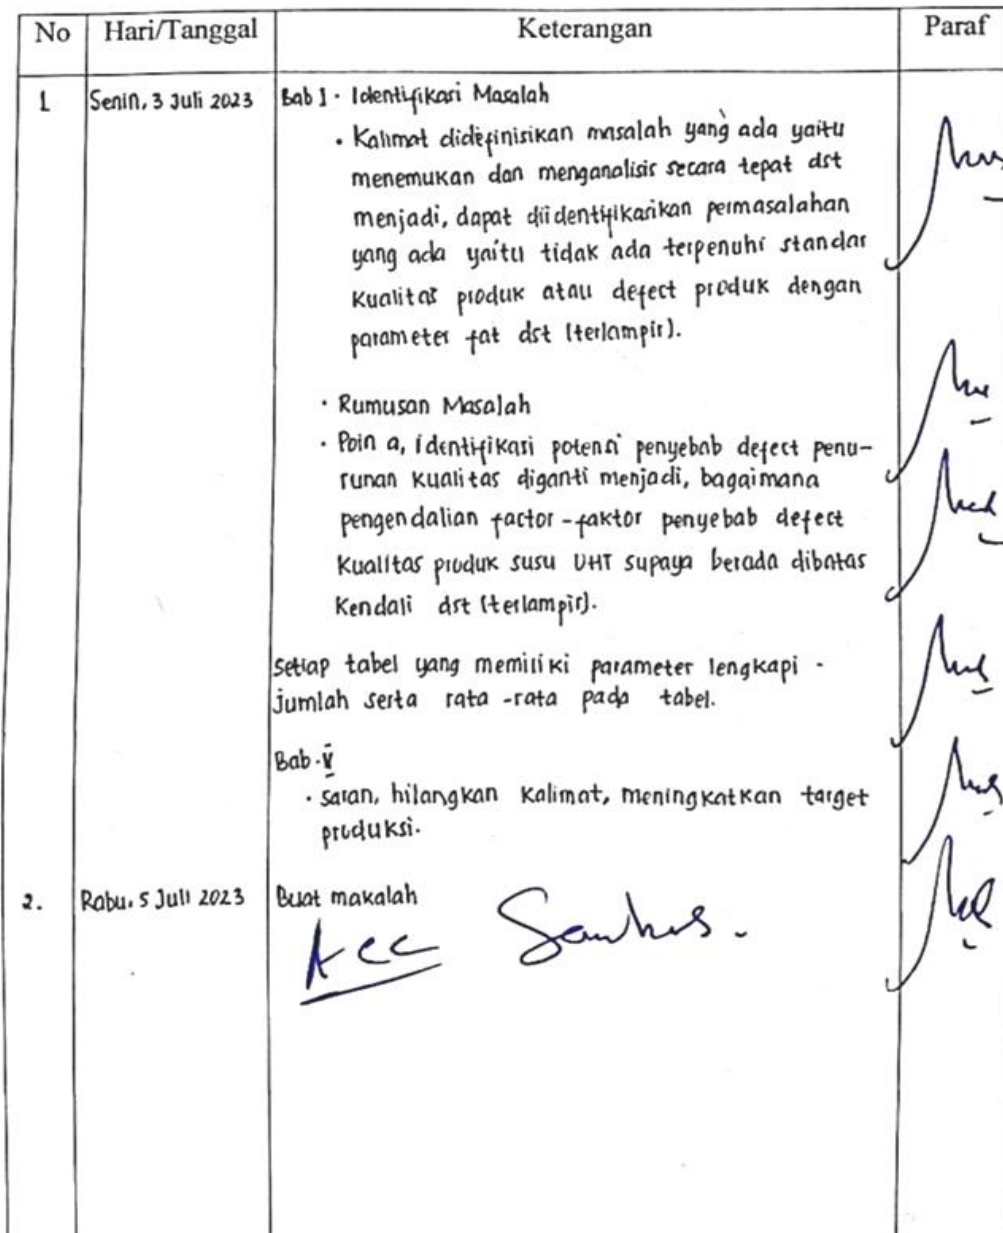 No Hari/Tanggal Keterangan Paraf
1 Senin, 3 Juli 2023 Bab I · Identifikasi Masalah
· Kalimat didefinisikan masalah yang ada yaitu
menemukan dan menganalisis secara tepat dst
menjadi, dapat diidentifikasikan permasalahan
yang ada yaitu tidak ada terpenuhi standar
kualitas produk atau defect produk dengan
parameter fat dst (terlampir).
· Rumusan Masalah
· Poin a, identifikasi potensi penyebab defect penu-
runan kualitas diganti menjadi, bagaimana
pengendalian factor-faktor penyebab defect
kualitas produk susu UHT supaya berada dibatas
kendali dst (terlampir).
Setiap tabel yang memiliki parameter lengkapi -
jumlah serta rata-rata pada tabel.
Bab·V
· saran, hilangkan kalimat, meningkatkan target
produksi.
2. Rabu, 5 Juli 2023 Buat makalah
Acc